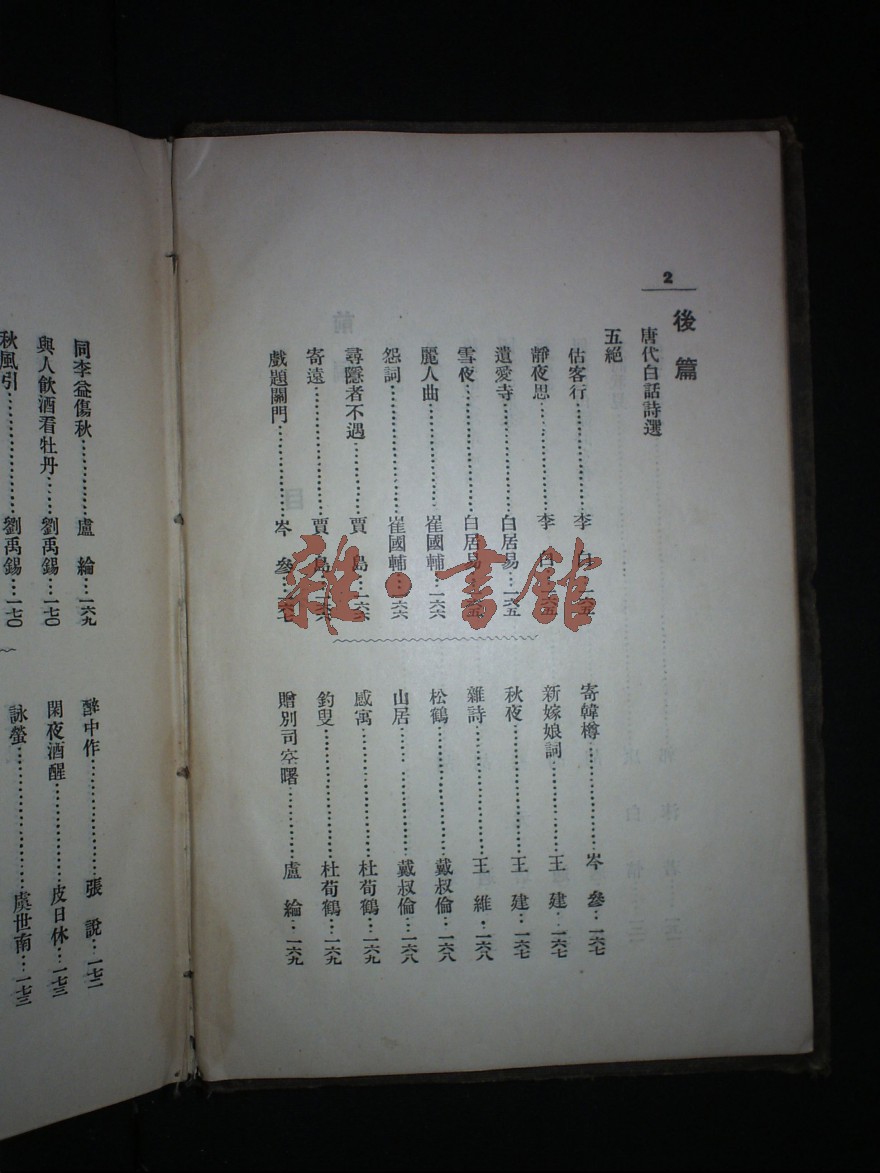 2
後篇
唐代白話詩選
五絕
估客行……李白…一六五
靜夜思……李白…一六五
遺愛寺……白居易…一六五
雪夜……白居易…一六五
麗人曲……崔國輔…一六六
怨詞……崔國輔…一六六
尋隱者不遇……賈島…一六六
寄遠……賈島…一六六
戲題關門……岑參…一六七
寄韓樽……岑參…一六七
新嫁娘詞……王建…一六七
秋夜……王建…一六七
雜詩……王維…一六八
松鶴……戴叔倫…一六八
山居……戴叔倫…一六八
感寓……杜荀鶴…一六九
釣叟……杜荀鶴…一六九
贈別司空曙……盧綸…一六九
同李益傷秋……盧綸…一六九
與人飲酒看牡丹……劉禹錫…一七〇
秋風引……劉禹錫…一七〇
醉中作……張說…一七二
閑夜酒醒……皮日休…一七三
詠螢……虞世南…一七三
雜·書館